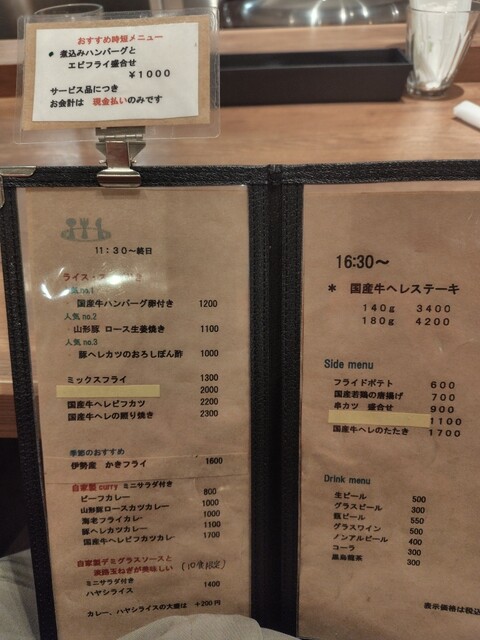 おすすめ時短メニュー
* 煮込みハンバーグと
エビフライ盛合せ
￥1000
サービス品につき
お会計は 現金払いのみです
11：30～終日
ライス・
国産牛ハンバーグ卵付き 1200
人気 no.2
山形豚 ロース生姜焼き 1100
人気 no.3
豚ヘレカツのおろしぽん酢 1000
ミックスフライ 1300
2000
国産牛ヘレビフカツ 2200
国産牛ヘレの照り焼き 2300
季節のおすすめ
伊勢産 かきフライ 1600
自家製curry ミニサラダ付き
ビーフカレー 800
山形豚ロースカツカレー 1000
海老フライカレー 1000
豚ヘレカツカレー 1100
国産牛ヘレビフカツカレー 1700
自家製デミグラスソースと
淡路玉ねぎが美味しい (10食限定)
ミニサラダ付き
ハヤシライス 1400
カレー、ハヤシライスの大盛は ＋200円
16:30～
* 国産牛ヘレステーキ
140g 3400
180g 4200
Side menu
フライドポテト 600
国産若鶏の唐揚げ 700
串カツ 盛合せ 900
1100
国産牛ヘレのたたき 1700
Drink menu
生ビール 500
グラスビール 300
瓶ビール 550
グラスワイン 500
ノンアルビール 400
コーラ 300
黒烏龍茶 300
表示価格は税込